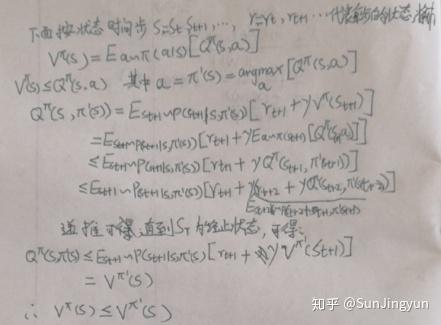 下面按状态时间步 S=St St+1, …, r=rt, rt+1 …代表每步的状态,
V^π(s) = E a~π(a|s) [Q^π(s,a)]
V^π(s) ≤ Q^π(s,a) 其中 a = π'(s) = argmax a [Q^π(s,a)]
Q^π(s, π'(s)) = E St+1~P(St+1|s,π'(s)) [rt+1 + γV^π(St+1)]
= E St+1~P(St+1|s,π'(s)) [rt+1 + γE a~π(St+1) [Q^π(s,a)]]
≤ E St+1~P(St+1|s,π'(s)) [rt+1 + γ Q^π(St+1, π'(St+1))]
≤ E St+1~P(St+1|s,π'(s)) [rt+1 + γ rt+2 + γ Q^π(St+2, π'(St+2))]
递推可得, 直到 ST 为终止状态, 可得:
Q^π(s,π'(s)) ≤ E St+1~P(St+1|s,π'(s)) [rt+1 + γ V^π'(St+1)]
= V^π'(s)
∴ V^π(s) ≤ V^π'(s)
知乎 @SunJingyun